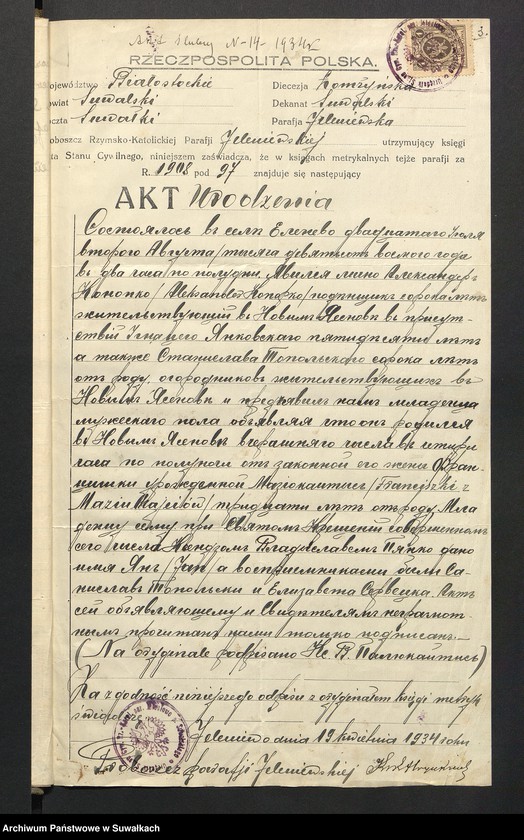 Akt ślubny N-14-1934 r.
3.
RZECZPOSPOLITA POLSKA.
ojewództwo Białostockie Diecezja Łomżyńska
owiat Suwalski Dekanat Suwalski
oczta Suwałki Parafja Jeleniewska
oboszcz Rzymsko-Katolickiej Parafji Jeleniewskiej utrzymujący księgi
ta Stanu Cywilnego, niniejszem zaświadcza, że w księgach metrykalnych tejże parafji za
R. 1908 pod 97 znajduje się następujący
AKT Urodzenia
Состоялось въ селѣ Еленево двадцатаго Іюля
второго Августа / тысяча девятьсотъ восьмого года
въ два часа по полудни. Явился лично Александеръ
Конопко / Aleksander Konopko / подёнщикъ сорока лѣтъ
жительствующій въ Новымъ Ясеновѣ въ присут-
ствіи Игнатего Янковскаго пятидесяти лѣтъ
а также Станислава Топольскаго сорока лѣтъ
отъ роду, огородниковъ жительствующихъ въ
Новымъ Ясеновѣ и предъявилъ намъ младенца
мужескаго пола объявляя что онъ родился
въ Новымъ Ясеновѣ вчерашняго числа въ четыре
часа по полуночи отъ законной его жены Фран-
цишки урожденной / Franciszki z
тридцати лѣтъ отъ роду. Мла
денцу сему при Святомъ Крещеніи совершенномъ
сего числа Ксендзомъ Владиславемъ дано
имя Янъ / Jan / а воспріемниками были Са-
ниславъ Топольски и Елизавета Актъ
сей объявляющему и Свидѣтелямъ неграмот-
нымъ прочитанъ нами только подписанъ.—
(Na oryginale podpisano Кс. В. )
Za zgodność niniejszego odpisu z oryginałem księgi metryk
świadczę
Jeleniewo dnia 19 kwietnia 1934 roku
Proboszcz parafji Jeleniewskiej
Archiwum Państwowe w Suwałkach